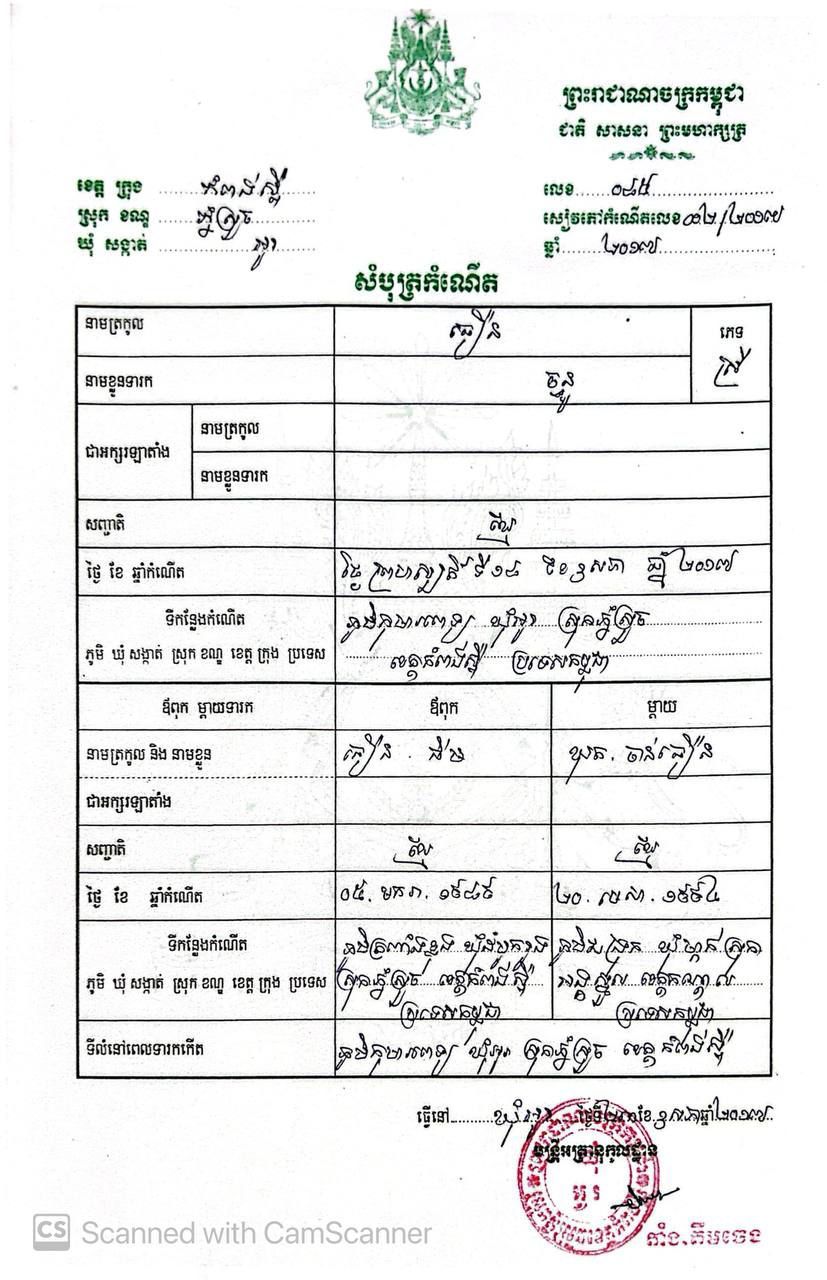 ព្រះរាជាណាចក្រកម្ពុជា
ជាតិ សាសនា ព្រះមហាក្សត្រ
ខេត្ត ក្រុង កំពង់ស្ពឺ
ស្រុក ខណ្ឌ ភ្នំស្រួច
ឃុំ សង្កាត់ អូរ
លេខ ០៤៥
សៀវភៅកំណើតលេខ ០២/២០១៧
ឆ្នាំ ២០១៧
សំបុត្រកំណើត
នាមត្រកូល ភឿន
ភេទ ស្រី
នាមខ្លួនទារក
ជាអក្សរឡាតាំង
នាមត្រកូល
នាមខ្លួនទារក
សញ្ជាតិ ខ្មែរ
ថ្ងៃ ខែ ឆ្នាំកំណើត ថ្ងៃ ព្រហស្បតិ៍ ទី១៨ ខែ ឧសភា ឆ្នាំ ២០១៧
ទីកន្លែងកំណើត
ភូមិ ឃុំ សង្កាត់ ស្រុក ខណ្ឌ ខេត្ត ក្រុង ប្រទេស
ភូមិ ឃុំអូរ ស្រុកភ្នំស្រួច
ខេត្តកំពង់ស្ពឺ ប្រទេសកម្ពុជា
ឪពុក ម្តាយទារក ឪពុក ម្តាយ
នាមត្រកូល និង នាមខ្លួន ភឿន
ជាអក្សរឡាតាំង
សញ្ជាតិ ខ្មែរ ខ្មែរ
ថ្ងៃ ខែ ឆ្នាំកំណើត ០៥. មករា. ១៩៨៩ ២០. មេសា. ១៩៩៤
ទីកន្លែងកំណើត
ភូមិ ឃុំ សង្កាត់ ស្រុក ខណ្ឌ ខេត្ត ក្រុង ប្រទេស
ស្រុកភ្នំស្រួច ខេត្តកំពង់ស្ពឺ
ប្រទេសកម្ពុជា
ស្រុក
ខេត្តកណ្តាល
ប្រទេសកម្ពុជា
ទីលំនៅពេលទារកកើត ភូមិ ឃុំអូរ ស្រុកភ្នំស្រួច ខេត្តកំពង់ស្ពឺ
ធ្វើនៅ ឃុំអូរ ថ្ងៃទី២៣ខែ ឧសភា ឆ្នាំ២០១៧
មន្ត្រីអត្រានុកូលដ្ឋាន
ឃុំ
អូរ
តាំង.គឹមទេង
CS Scanned with CamScanner